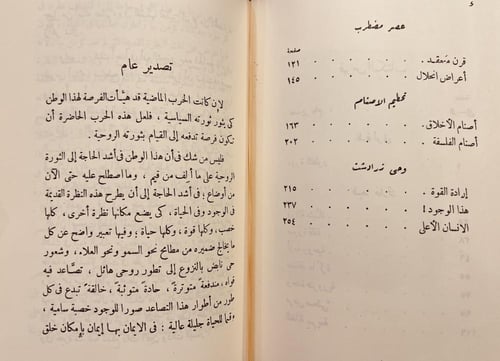 ء
عصر مضطرب
صفحة
قرن مُعقد . . . . . . ١٣١
أعراض انحلال . . . . . ١٤٥
تحطيم الأصنام
أصنام الأخلاق . . . . . ١٦٣
أصنام الفلسفة . . . . . ٢٠٢
وحى زرادشت
إرادة القوة . . . . . . ٢١٥
هذا الوجود ! . . . . . ٢٣٧
الانسان الأعلى . . . . . ٢٥٤
تصدير عام
لإن كانت الحرب الماضية قد هيأت الفرصة لهذا الوطن
كى يثور ثورته السياسية ، فلعل هذه الحرب الحاضرة أن
تكون فرصة تدفعه إلى القيام بثورته الروحية .
فليس من شك فى أن هذا الوطن فى أشد الحاجة إلى الثورة
الروحية على ما ألف من قيم ، وما اصطلح عليه حتى الآن
من أوضاع ؛ فى أشد الحاجة إلى أن يطرح هذه النظرة القديمة
فى الوجود وفى الحياة ، كى يضع مكانها نظرة أخرى ، كلها
خصب ، وكلها قوة ، وكلها حياة ؛ وفيها تعبير واضح عن كل
ما يخالج ضميره من مطامح نحو السمو ونحو العلاء ، وشعور
حى نابض بالنزوع إلى تطور روحى هائل ، تصَّاعد فيه
قواه ، مندفعة ً متوترةً ، حادةً متوثبةً ، خالقةً تبدع فى كل
طور من أطوار هذا التصاعد صورا للوجود خصبة سامية ،
وقيما للحياة جليلة عالية : فى الايمان بها إيمان بإمكان خلق